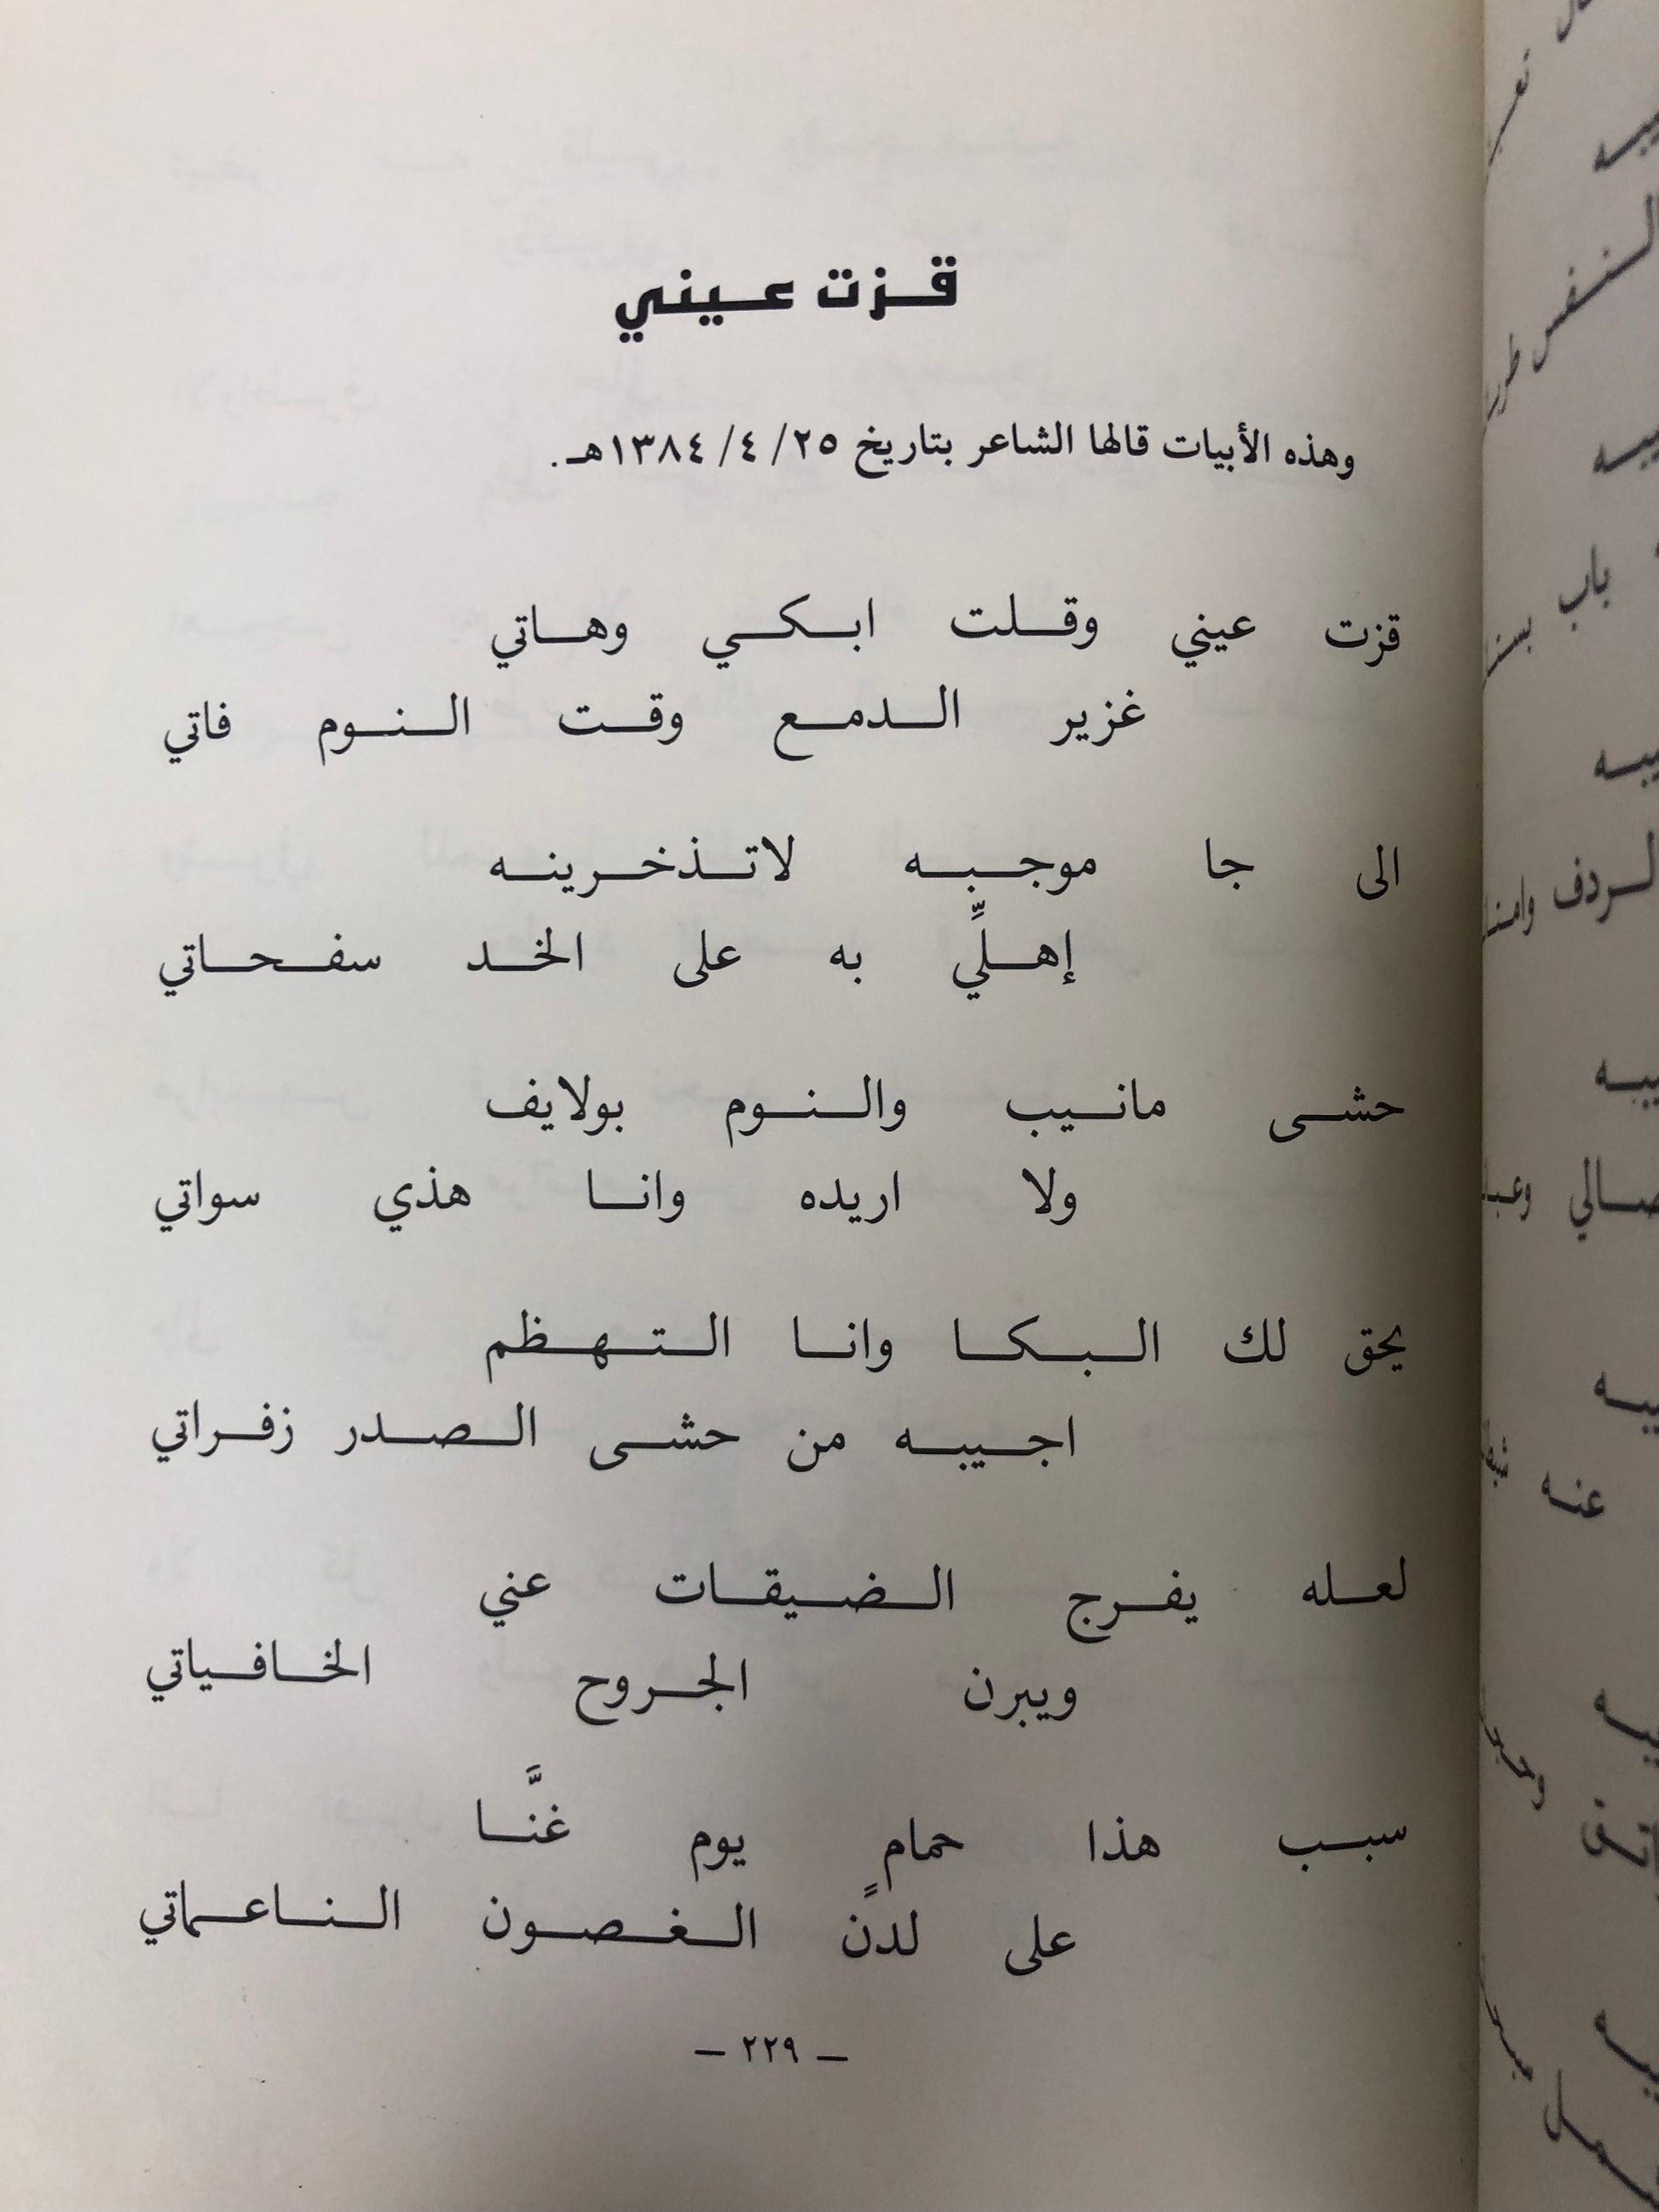 قزت عيني
وهذه الأبيات قالها الشاعر بتاريخ ٢٥/ ٤/ ١٣٨٤هـ.
قزت عيني وقلت ابكي وهاتي
غزير الدمع وقت النوم فاتي
الى جا موجبه لاتذخرينه
إهلِّي به على الخد سفحاتي
حشى مانيب والنوم بولايف
ولا اريده وانا هذي سواتي
يحق لك البكا وانا التهظم
اجيبه من حشى الصدر زفراتي
لعله يفرج الضيقات عني
ويبرن الجروح الخافياتي
سبب هذا حمامٍ يوم غنَّا
على لدن الغصون الناعماتي
— ٢٢٩ —
باب
عنه